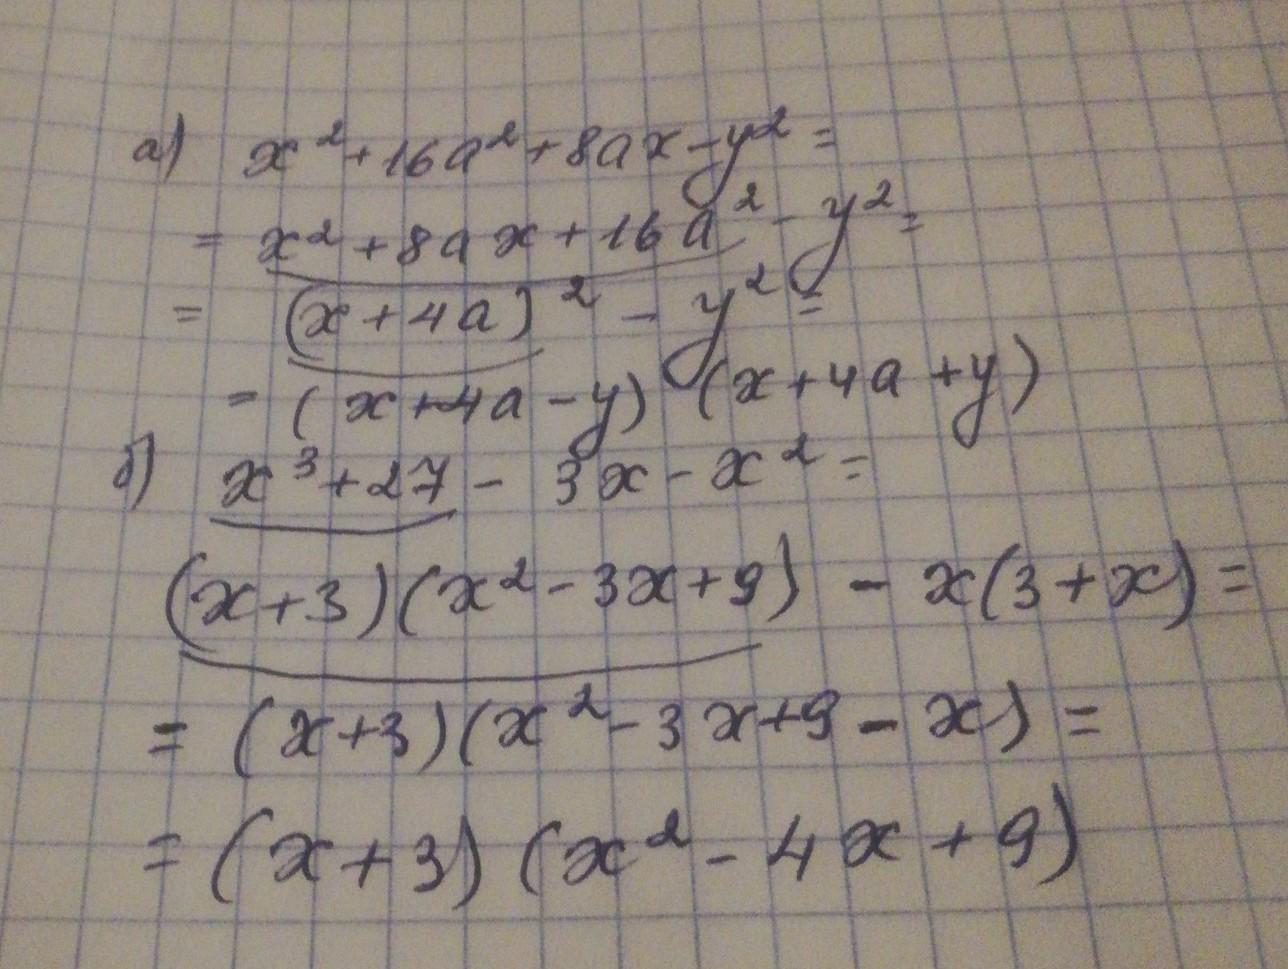 а) x²+16a²+8ax-y²=
= x²+8ax+16a²-y²=
= (x+4a)²-y²=
= (x+4a-y)(x+4a+y)
б) x³+27-3x-x²=
(x+3)(x²-3x+9)-x(3+x)=
= (x+3)(x²-3x+9-x)=
= (x+3)(x²-4x+9)